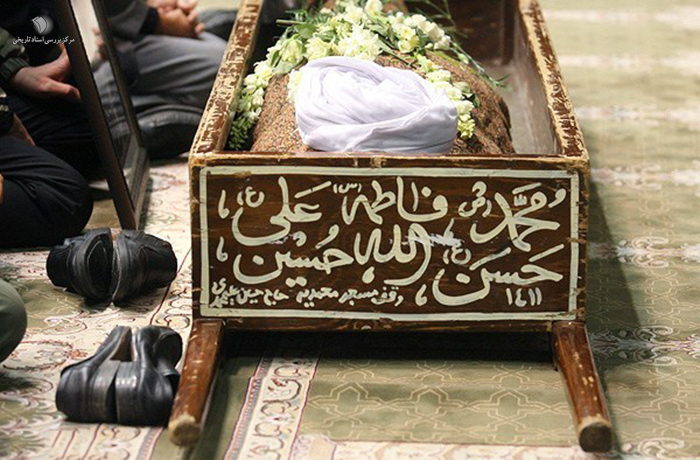 مرکز بررسی اسناد تاریخی
محمد (ص) فاطمه (س) علی (ع)
حسن (ع) الله حسین (ع)
۱۴۱۱ وقف مسجد محمدیه حاج حسین